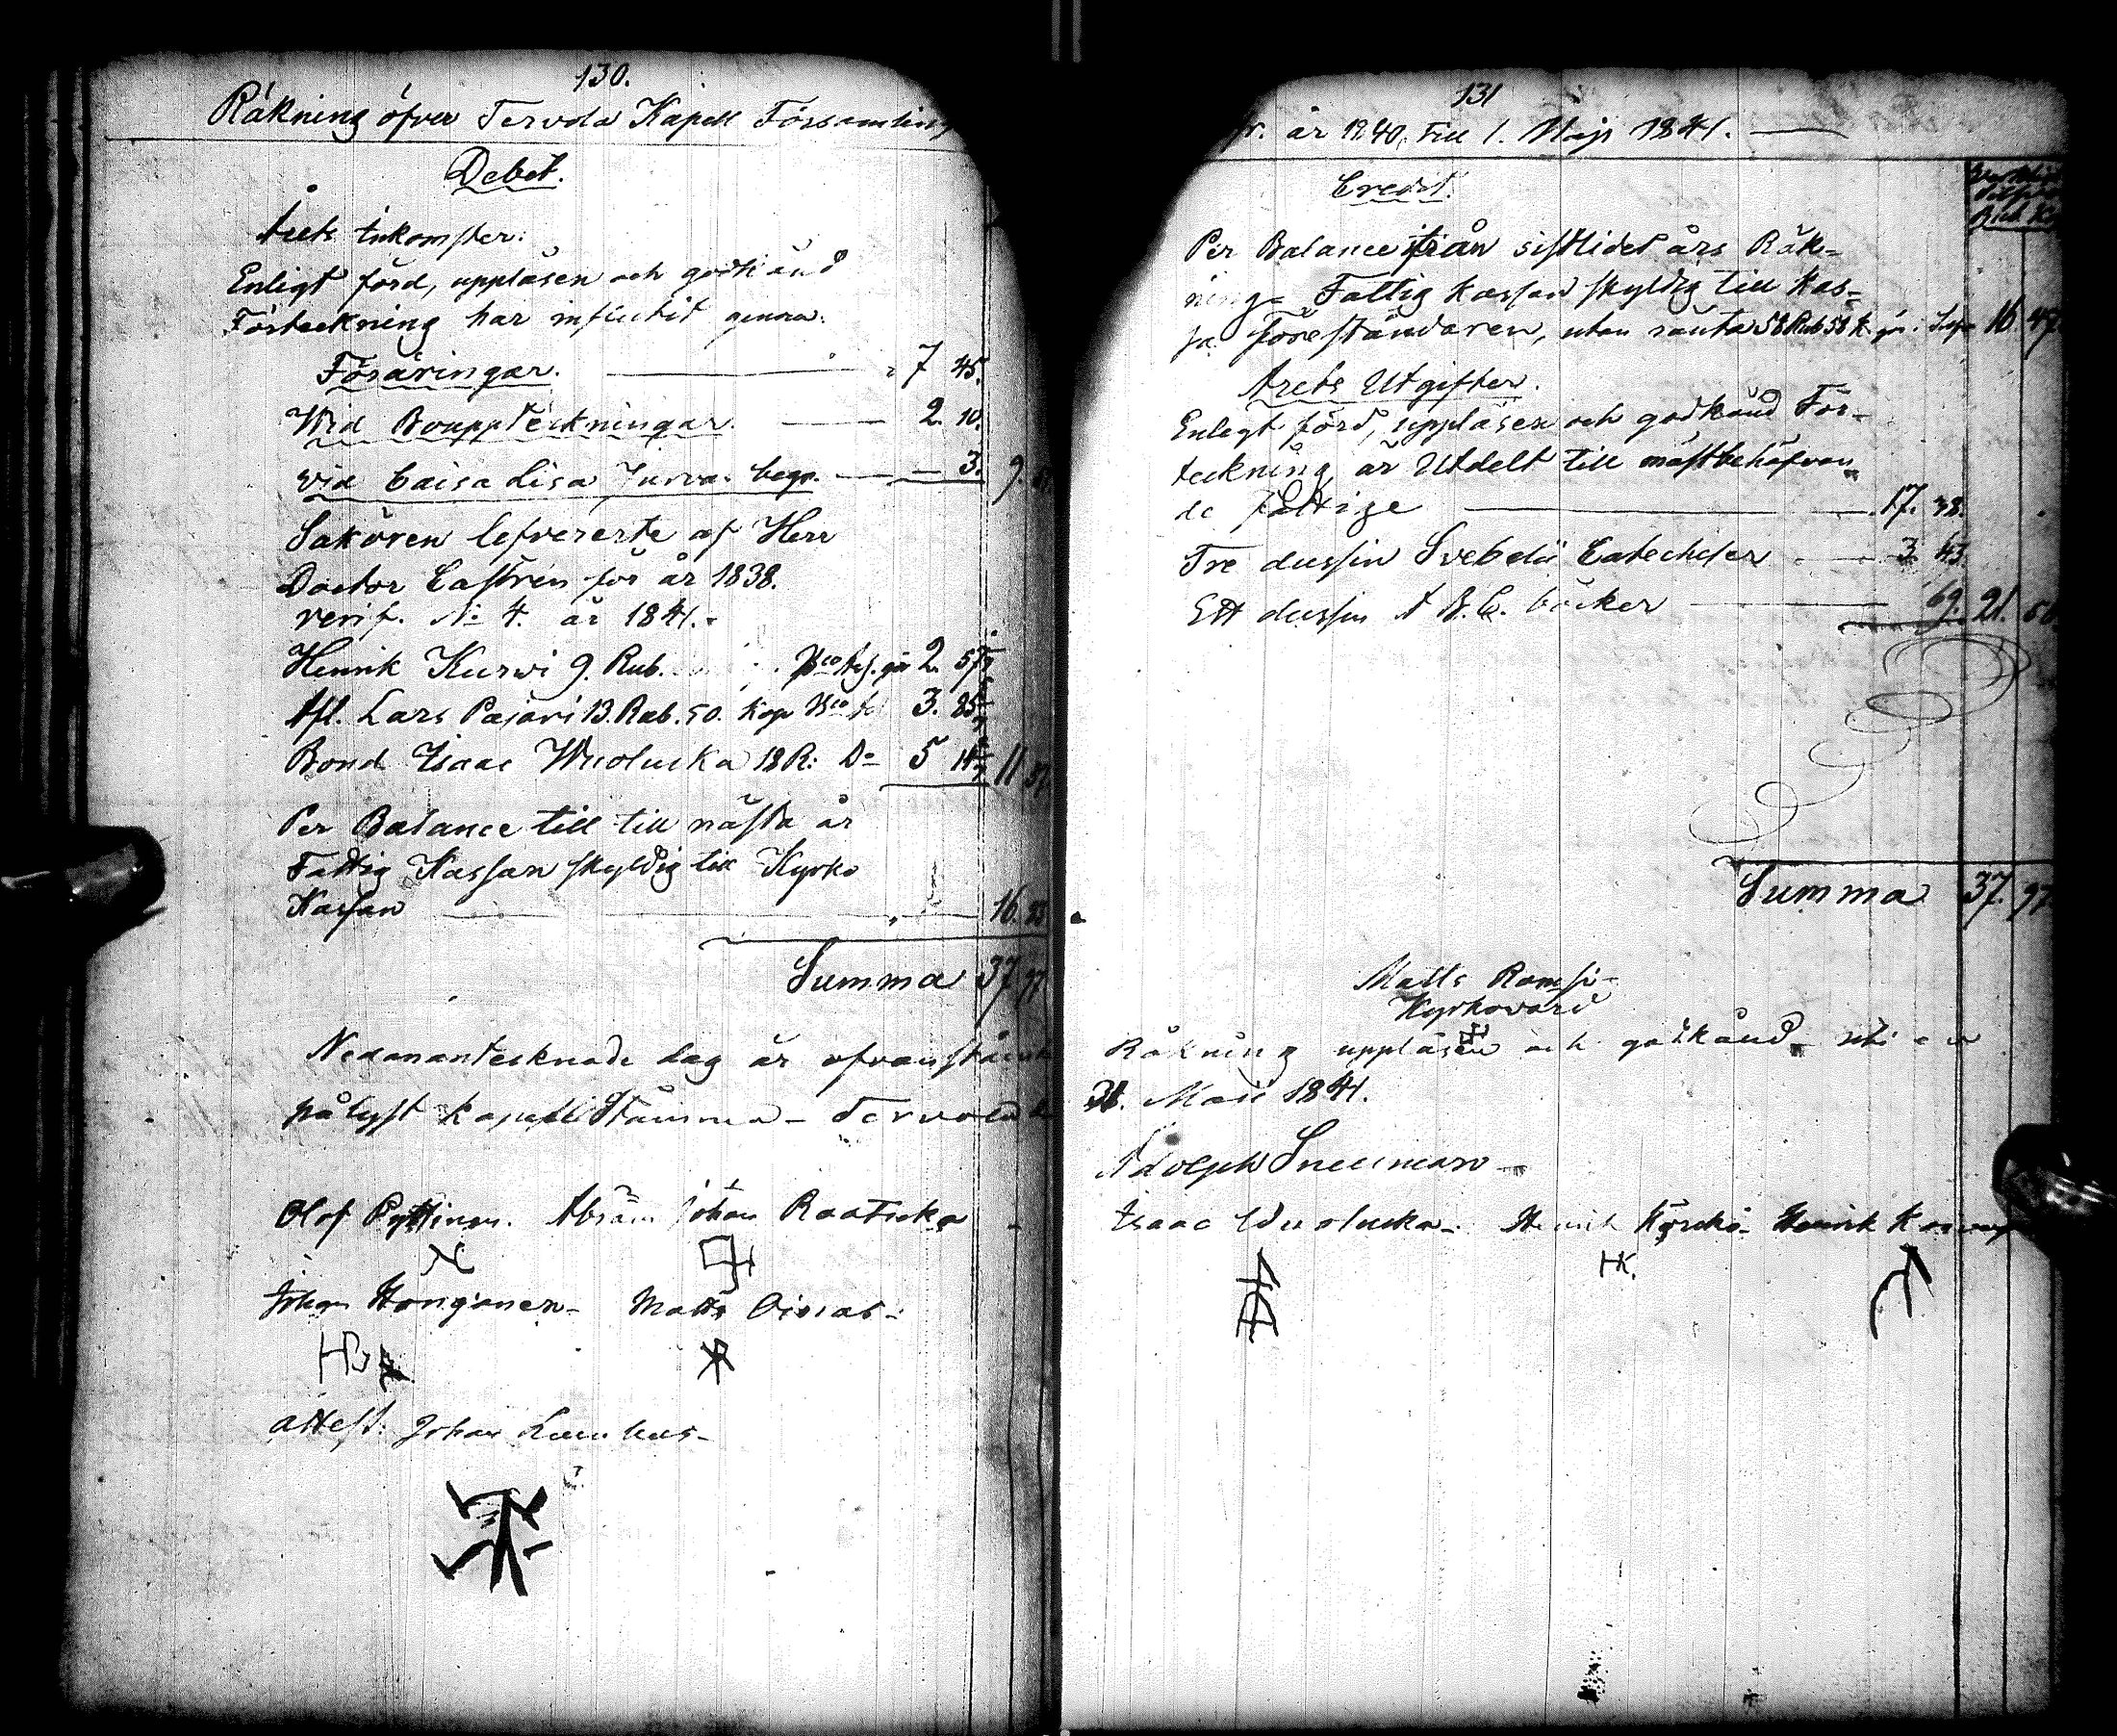 130.
Räkning öfver Tervola Kapell Församling
Debet.
Årets inkomster:
Enligt förd, uppläsen och godkänd
Förteckning har influtit genom:
Föräringar. 7 45.
Wid Bouppteckningar. 2. 10.
wid Caisa Lisa Jurva. begr. 3. 9.
Sakören lefvererte af Herr
Doctor Castrén för år 1838.
verif. N: 4. år 1841.
Henrik Kurvi 9. Rub. gör 2. 57
Afl. Lars Pajari 13. Rub. 50. Kop 3. 85
Bond. Isaac Wuolucka 18 R: Do 5 14 11
Per Balance till till nästa år
Fattig Kassan skyldig till Kyrko
Kassan 16.
Summa 37 97
Nedanantecknade dag är ofvanstående
pålyst Kapell Stämma - Tervola
Olof Pyttinen. Abram Johan Raatucka
Johan Hongonen - Matts Oinas -
attest. Johan
131
år 1840, till 1. Maji 1841.
Credit.
Per Balance från sistlidet års Räk=
ning= Fattig Kassan skyldig till Kas=
sa Föreståndaren, utan ränta 58 Rub 58 K gör: 16 47
Årets Utgifter.
Enligt förd, uppläsen och godkänd För-
teckning är Utdelt till mästbehöfvan
de fattige 17. 38.
Tre dussin Svebelii Catecheser 3 43.
Ett dussin A B. C. böcker 69. 21. 50
Summa 37. 97
Matts
Kyrkovärd
Räkning uppläsen och godkänd
31. Maii 1841.
Adolph Snellman
Isaac Wuolucka - Henrik Henrik
HK.